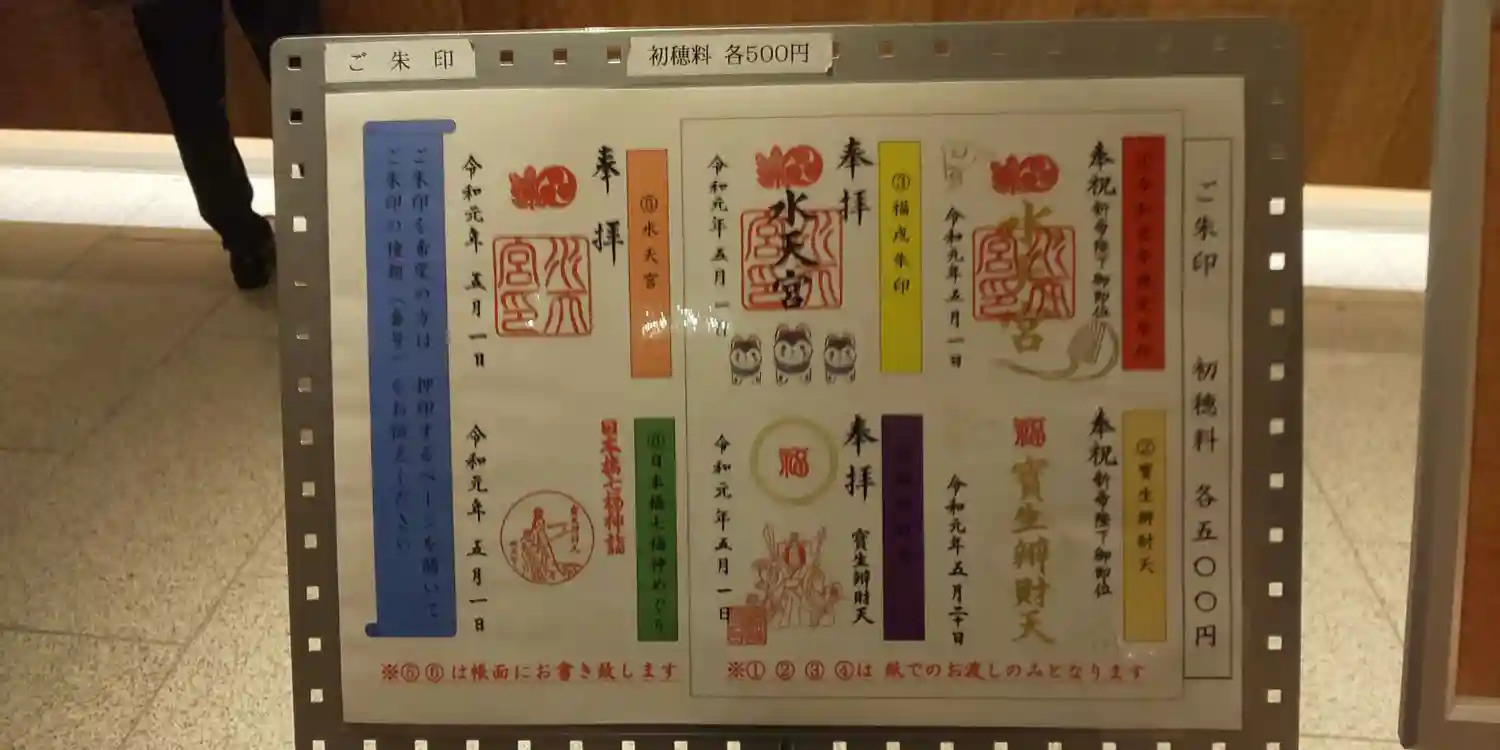 ご朱印
初穂料 各500円
ご朱印 初穂料 各五〇〇円
奉祝 新帝陛下御即位
水天宮
令和元年五月一日
②寶生辨財天
奉祝 新帝陛下御即位
福
寶生辨財天
令和元年五月二十日
③福戌朱印
奉拝
水天宮
令和元年五月一日
奉拝
寶生辨財天
福
令和元年五月一日
⑤水天宮
奉拝
水天宮印
令和元年五月一日
⑥日本橋七福神めぐり
日本橋七福神詣
令和元年五月一日
ご朱印を希望の方は 押印するページを開いて
ご朱印の種類(番号)をお伝えください
※①②③④は 紙でのお渡しのみとなります
※⑤⑥は帳面にお書き致します